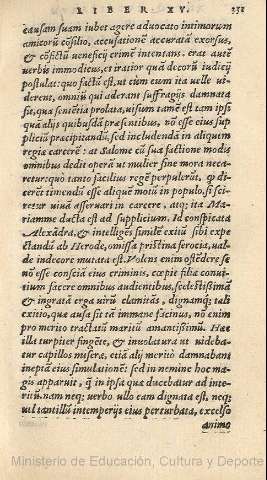 LIBER XV. 251
causam suam iubet agere aduocato intimorum
amicorũ cõsilio, accusationẽ accuratã exorsus,
& cõfictũ ueneficij crimẽ intentans. erat autẽ
uerbis immodicus, et iratior quã decorũ iudicij
postulat: quo factũ est, ut cum eum ita uelle ui-
derent, omniũ qui aderant suffragijs damnata
sit, qua sentẽtia prolata, uisum tamẽ est tam ipsi
quã alijs quibusdã præsentibus, nõ esse eius sup
pliciũ præcipitandũ, sed includendã in aliquem
regiæ carcerẽ: at Salome cũ sua factione modis
omnibus dedit operã ut mulier sine mora neca-
retur: quo tanto facilius regẽ perpulerũt, ꝙ di-
cerẽt timendũ esse aliquẽ motũ in populo, si sci-
retur uiuã asseruari in carcere, atq; ita Ma-
riamme ducta est ad supplicium. Id conspicata
Alexãdra, & intelligẽs simile exitiũ sibi expe-
ctandũ ab Herode, omissa pristina ferocia, ual-
de indecore mutata est. Volens enim ostẽdere se
nõ esse consciã eius criminis, cœpit filiæ conuiti-
um facere omnibus audientibus, scelestissimã
& ingratã erga uirũ clamitãs, dignamq; tali
exitio, quæ ausa sit tã immane facinus, nõ enim
pro merito tractatũ maritũ amantissimũ. Hæc
illa turpiter fingẽte, & inuolatura ut uidebat
tur capillos miseræ, etiã alij meritò damnabant
ineptã eius simulationẽ: sed in nemine hoc ma-
gis apparuit, ꝙ in ipsa quæ ducebatur ad inte-
ritũ. nam neq; uerbo ullo eam dignata est, neq;
uel tantillũ intemperijs eius perturbata, excelso
animo
Ministerio de Educación, Cultura y Deporte